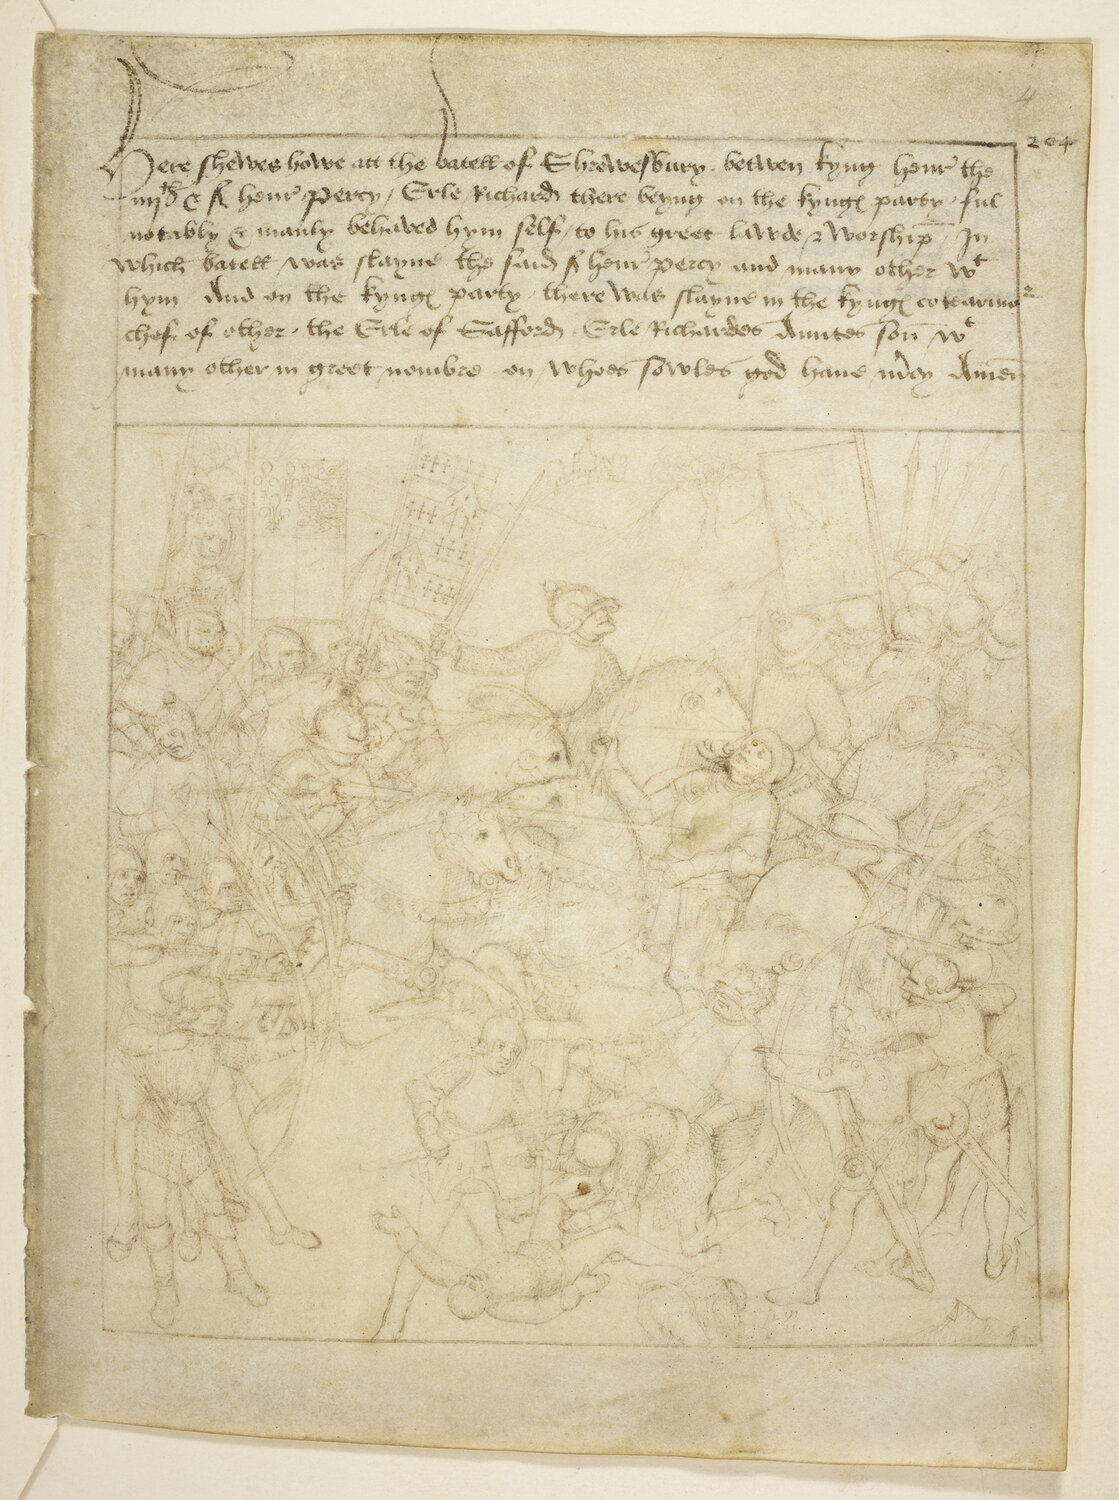 4
204
Here shewes howe att the batell of Shrewesbury . betwen kyng henr the
iiijth & S henr Percy / Erle Richard there beyng on the kynges party . ful
notably & manly behaved hym self / to his greet lawde & worship . In
which batell was slayne the said S henr Percy and many other wt
hym And on the kynges party . there was slayne in the kynges cotearmor
chef of other . the Erle of Safford . Erle Richardes Auntes son wt
many other in greet nombre on whoes sowles god have mercy Amen